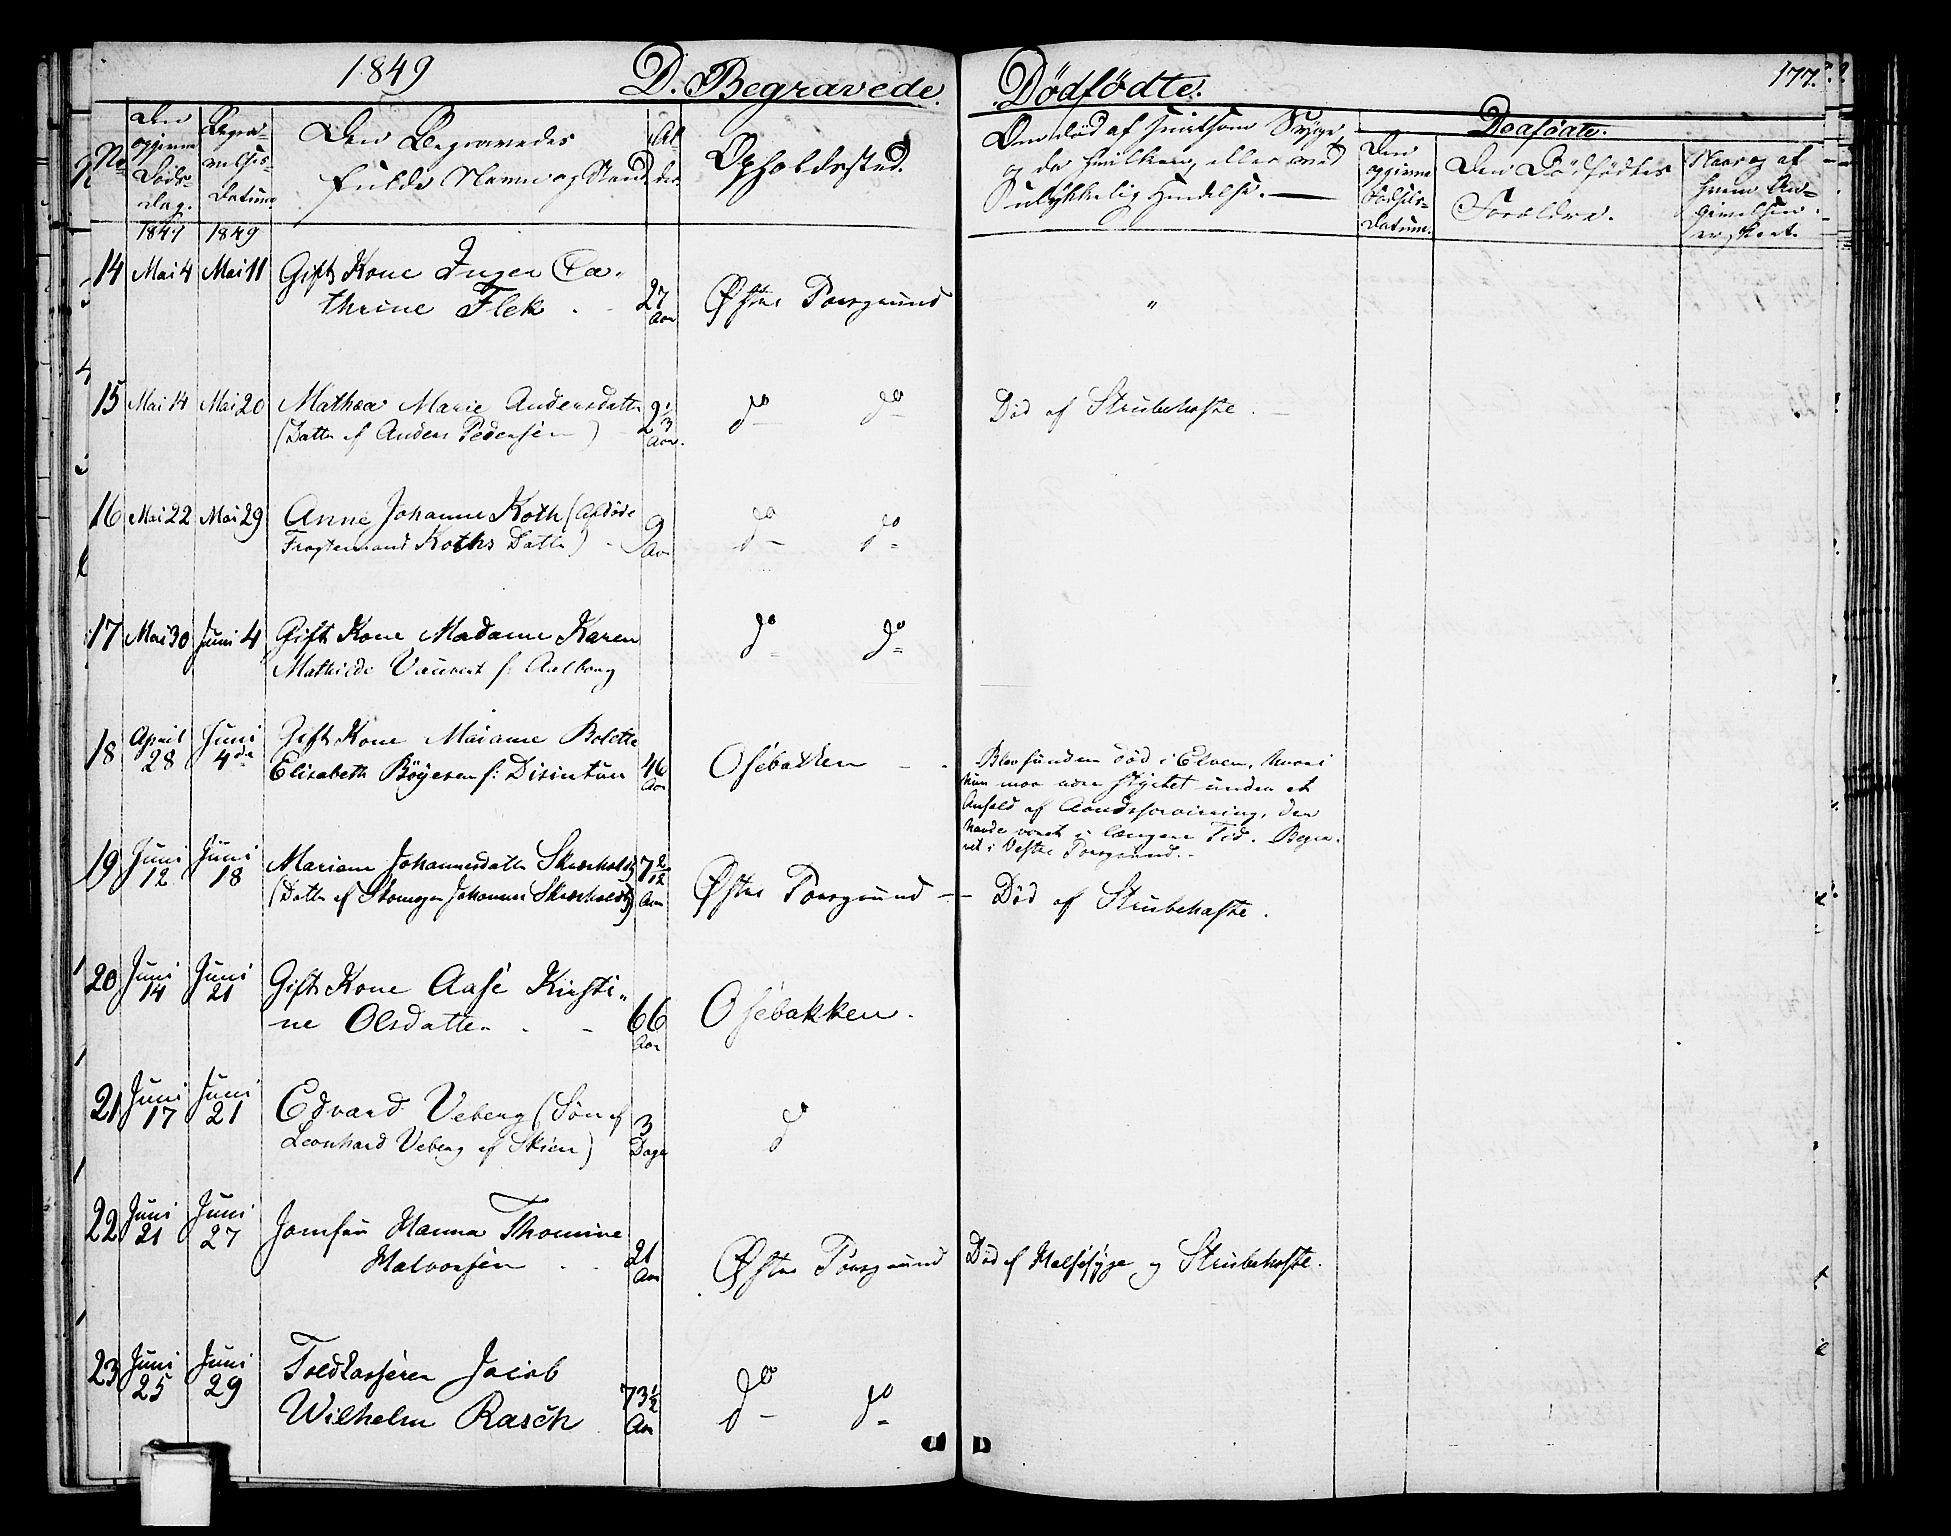 1849 D. Begravede. Dödfödte. 177.
No Den opgivne Døds-dag. Begra-velses-Datum. Den Begravedes fulde Navn og Stand Al-der. Opholdssted. Om død af smitsom Syge, og da hvilken, eller ved ulykkelig Hændelse.
Dødfødte.
Den opgivne Fødsels-Datum. Den Dödfödtes Forældre. Naar og af hvem An-givelsen er skeet.
1849 1849
14 Mai 4 Mai 11 Gift Kone Inger Ca-
thrine Flek 27 Aar Øster Porsgrund "
15 Mai 14 Mai 20 Mathea Marie Andersdatter
(Datter af Anders Pedersen) 2 1/3 Aar. do do Død af Strubehoste.
16 Mai 22 Mai 29 Anne Johanne Koth (afdøde
Fragtemand Koths Datter) 9 Aar do do
17 Mai 30 Juni 4 Gift Kone Madame Karen do do
Mathilde Vauvert f: Aalborg
18 April 28 Juni 4de Gift Kone Madame Bolette
Elisabeth Böyesen f: Disintun 46 Aar Osebakken
Blev funden død i Elven, hvori
hun maa være styrtet under et
Anfald af Aandsforvirring, der
havde varet i længere Tid. Begra-
vet i Vestre Porsgrund.
19 Juni 12 Juni 18 Mariane Johannesdatter Skræholdt
(Datter af Skomager Johannes Skræholdt) 7 2/12 Aar Øster Porsgrund Død af Strubehoste.
20 Juni 14 Juni 21 Gift Kone Aase Kirsti-
ne Olsdatter 66 Aar Osebakken.
21 Juni 17 Juni 21 Edvard Veberg (Søn af
Leonhard Veberg af Skien) 3 Dage do
22 Juni 21 Juni 27 Jomfru Hanna Thomine
Halvorsen 21 Aar Øster Porsgrund Död af Halssyge og Strubehoste.
23 Juni 25 Juni 29 Toldkasserer Jacob
Wilhelm Rasch 73 1/2 Aar do do